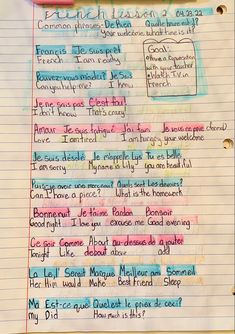 French lesson 2 04.23.22
Common phrases De rien Quelle heure est-il?
Your welcome what time is it?
Français Je suis prêt
French I am ready
Goal:
• Have a conversation
with your teacher
• Watch TV in
French
Pouvez-vous m'aider? Je Sais
Can you help me? I know
Je ne sais pas C'est fou!
I don't know That's crazy
Amour Je suis fatigué J'ai faim Je vous en prie
Love I am tired I am hungry your welcome
Je suis désolé Je m'appelle Lily Tu es belle
I am sorry My name is Lily you are beautiful
Puis-je avoir une morceau? Quels sont les devoirs?
Can I have a piece? What is the homework
Bonne nuit Je t'aime Pardon Bonsoir
Good night I love you excuse me Good evening
Ce soir Comme About au-dessous de ajouter
Tonight Like about above add
La Le Serait Marque Meilleur ami Sommeil
Her Him would Make Best friend Sleep
Ma Est-ce que Quel est le prix de ceci?
my Did How much is this?